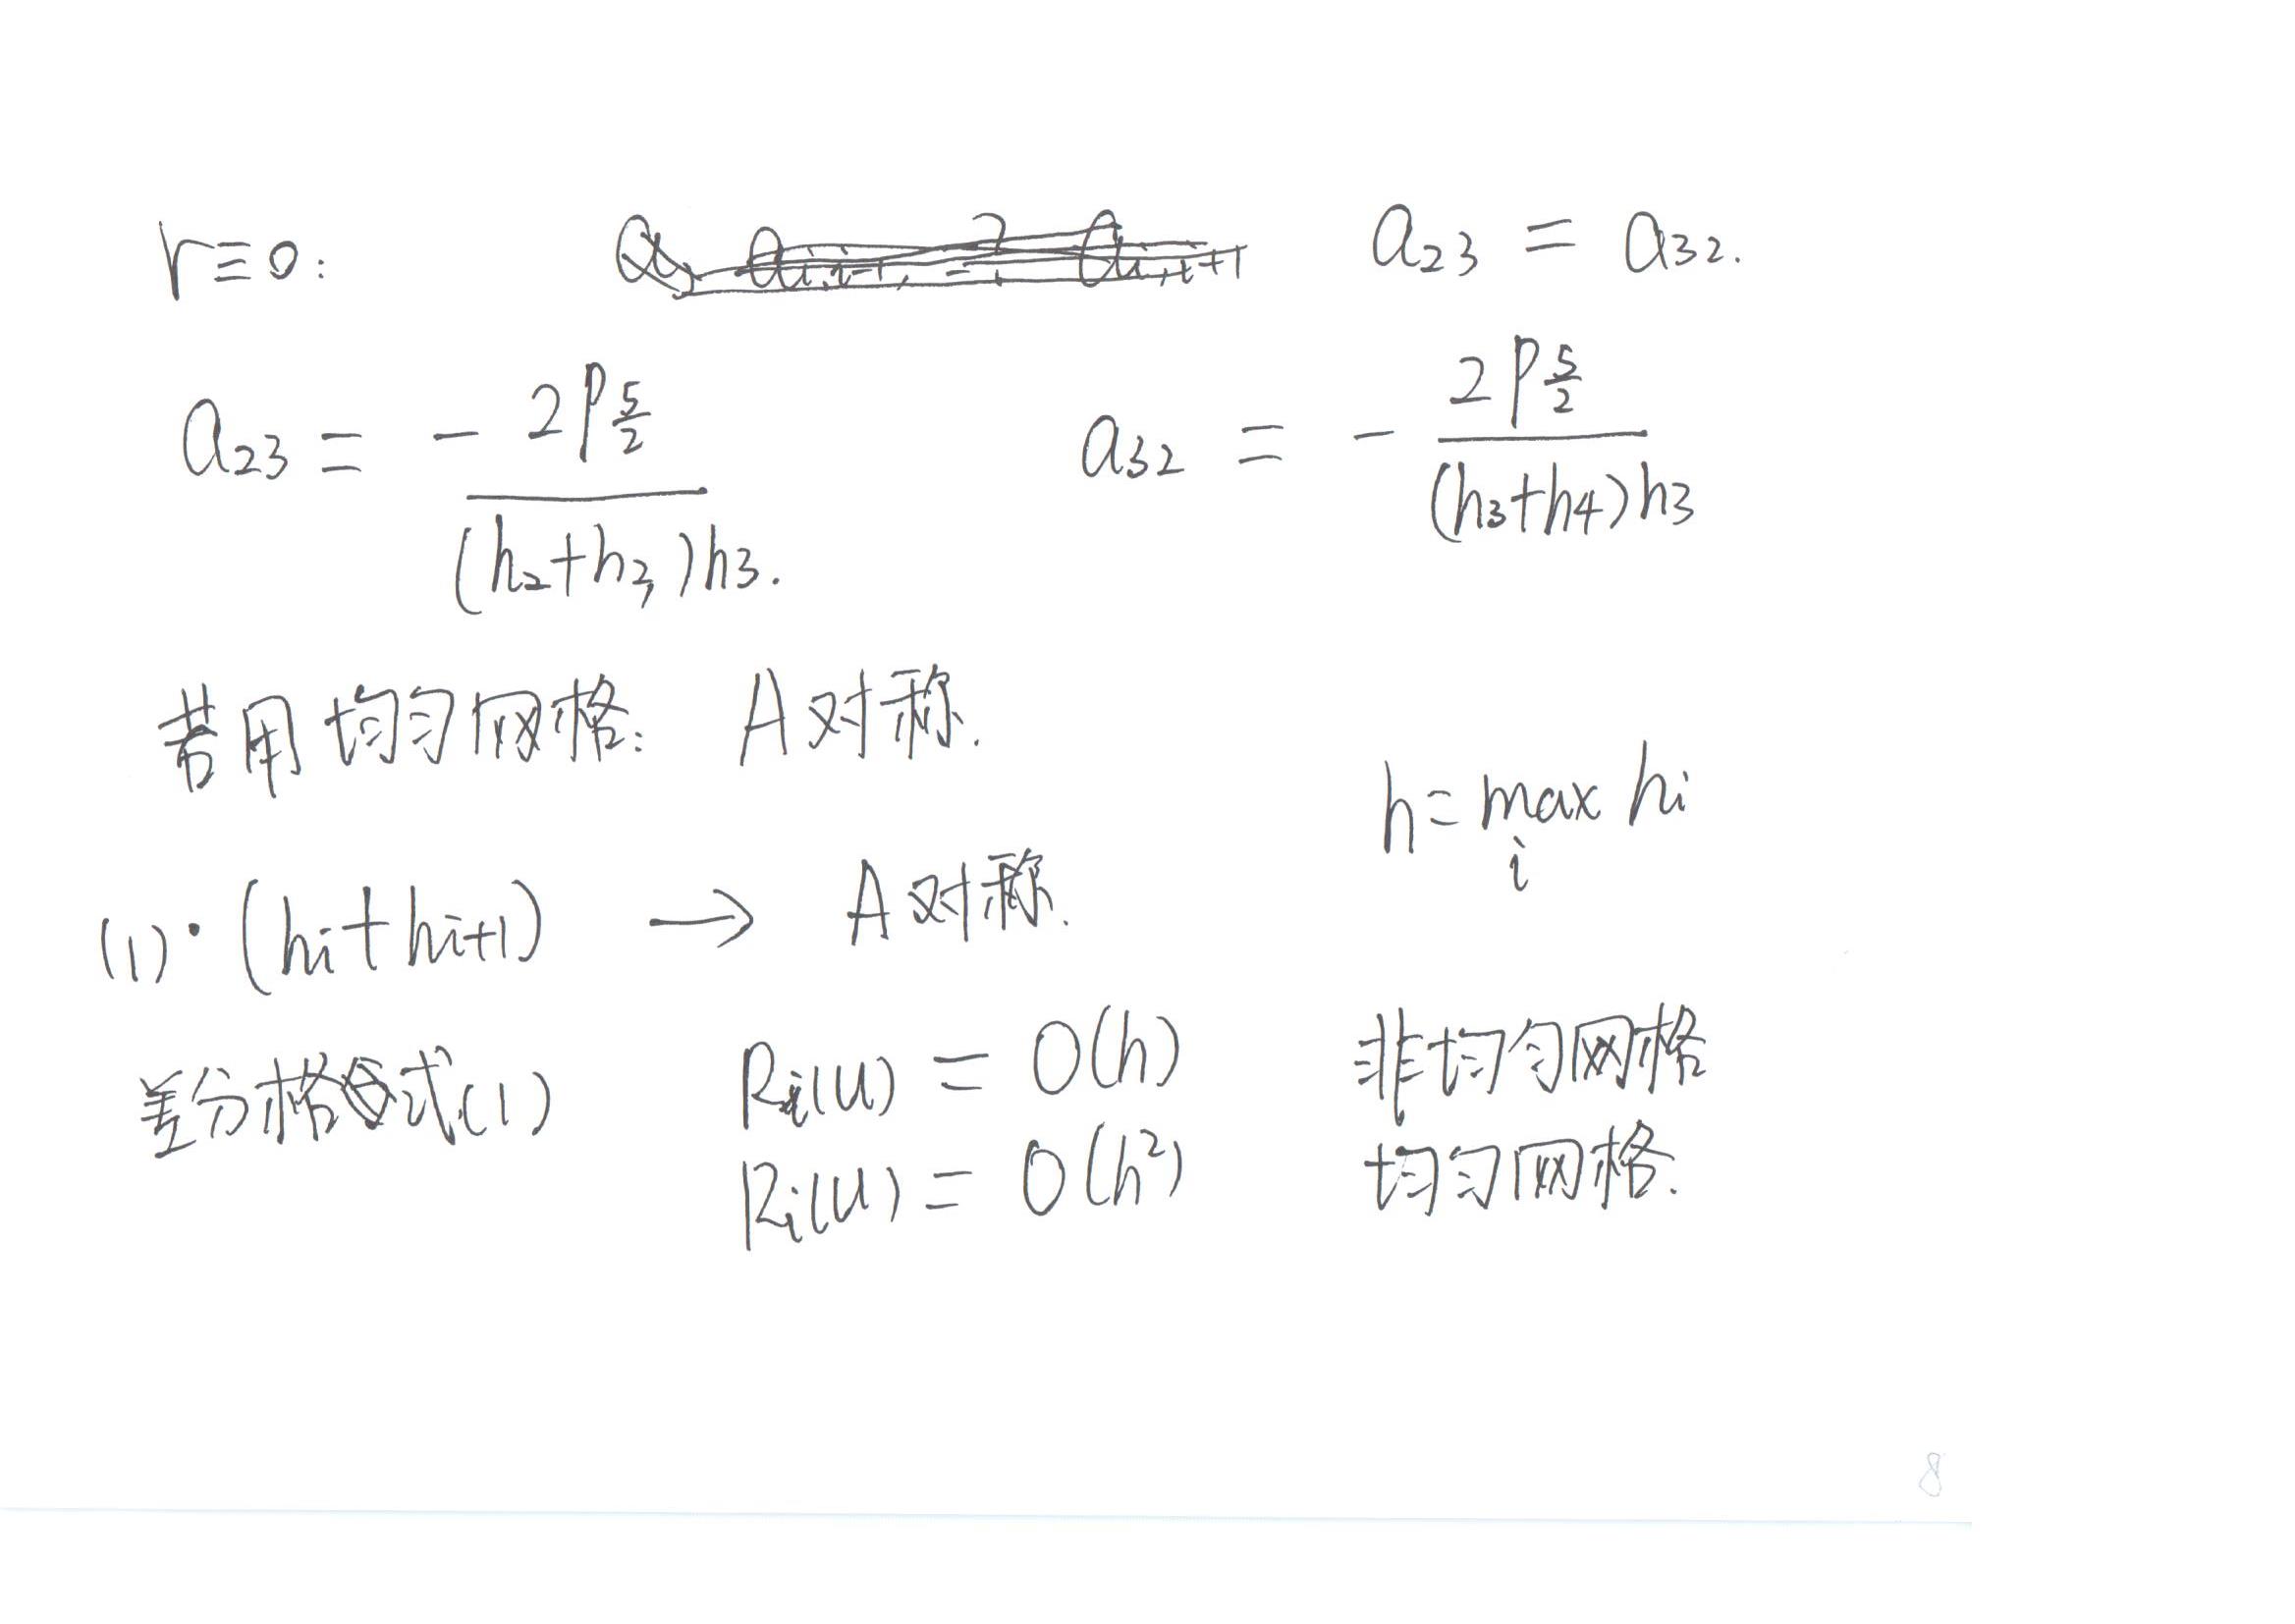 r≡0: a₂₃ = a₃₂.
a₂₃ = - 2P_{5/2} / (h₂+h₃)h₃. a₃₂ = - 2P_{5/2} / (h₃+h₄)h₃
若用均匀网格: A对称.
h = max_i hᵢ
(1)·(hᵢ+hᵢ₊₁) → A对称.
差分格式(1) Rᵢ(u) = O(h) 非均匀网格
Rᵢ(u) = O(h²) 均匀网格.
8